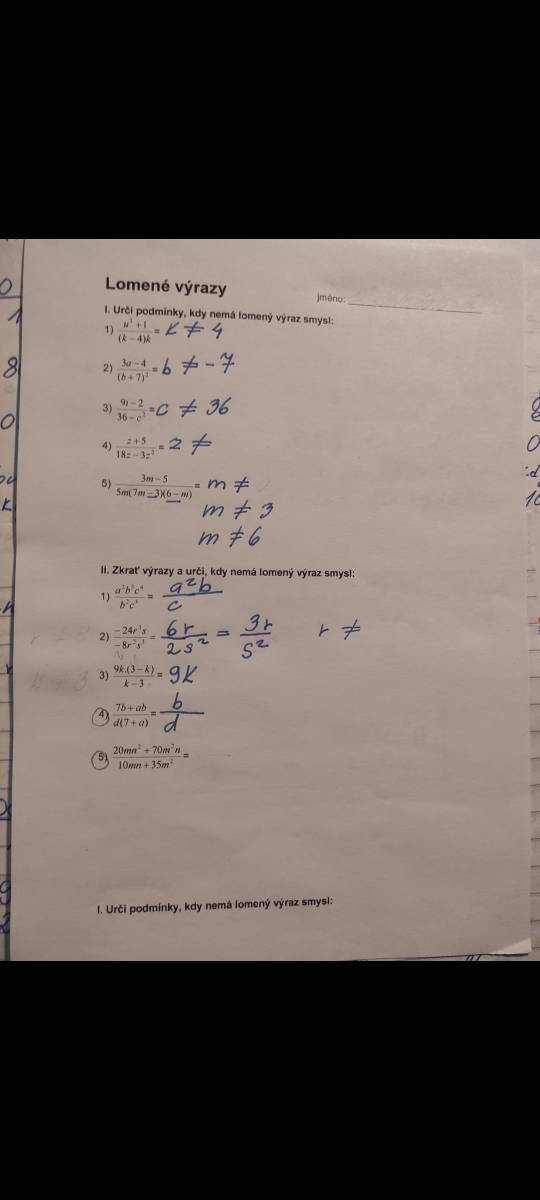 Lomené výrazy
jméno:
I. Urči podmínky, kdy nemá lomený výraz smysl:
1) (u³ + 1)/((k − 4)k) = k ≠ 4
2) (3a − 4)/((b + 7)²) = b ≠ − 7
3) (9i − 2)/(36 − c²) = c ≠ 36
4) (z + 5)/(18z − 3z²) = z ≠
5) (3m − 5)/(5m(7m − 3)(6 − m)) = m ≠
m ≠ 3
m ≠ 6
II. Zkrať výrazy a urči, kdy nemá lomený výraz smysl:
1) = a²b/c
2) = 6r/2s² = 3r/s² r ≠
3) 9k.(3 − k)/(k − 3) = 9k
4) (7b + ab)/(d(7 + a)) = b/d
5) (20mn² + 70m²n)/(10mn + 35m²) =
I. Urči podmínky, kdy nemá lomený výraz smysl: